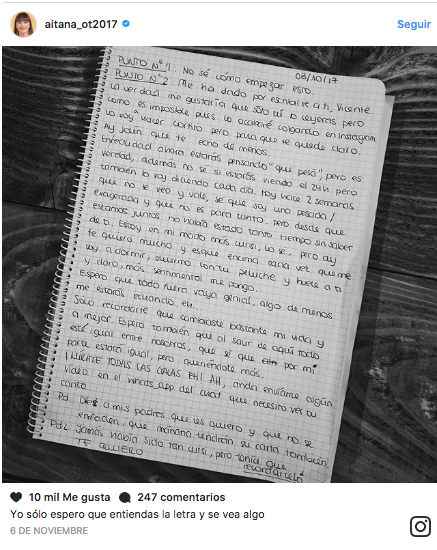 aitana_ot2017
Seguir
08/10/17
PUNTO Nº 1: No sé cómo empezar esto.
PUNTO Nº 2: Me ha dado por escribirte a ti, Vicente
La verdad me gustaría que sólo tú lo leyeras pero
como es imposible pues lo acabaré colgando en instagram
Lo voy a hacer cortito pero para que te quede claro.
Ay jolín que te echo de menos.
En realidad ahora estarás pensando "que pesá", pero es
verdad, además no se si estarás viendo el 24h pero
también lo voy diciendo cada día. Hoy hace 2 semanas
que no te veo y vale, se que soy una pesada/
exagerada y que no es para tanto. pero desde que
estamos juntos no había estado tanto tiempo sin saber
de ti. Estoy en mi modo más cursi, lo sé, pero ay
te quiero mucho y es que encima cada vez que me
voy a dormir, duermo con tu peluche y huele a ti
y claro, más sentimental me pongo.
Espero que todo fuera vaya genial, algo de menos
me estarás echando, eh.
Sólo recordarte que cambiaste bastante mi vida y
a mejor. Espero también que al salir de aquí todo
esté igual entre nosotros, que sé que por mi
parte estará igual, pero queriéndote más.
¡LLÉVATE TODAS LAS CARAS EH! AH, anda envíame algún
vídeo en el whats_app del cuat que necesito ver tu
carita.
Pd: Diles a mis padres que les quiero y que no se
enfaden, que mañana tendrán su carta también.
Pd2: Jamás había sido tan cursi, pero tenía que
recordártelo
TE QUIERO
10 mil Me gusta 247 comentarios
Yo sólo espero que entiendas la letra y se vea algo
6 DE NOVIEMBRE